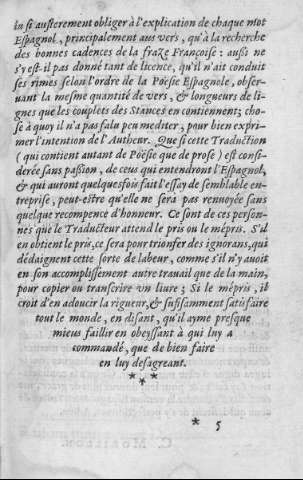 in si austerement obliger à l'explication de chaque mot
Espagnol, principalement aus vers, qu'à la recherche
des bonnes cadences de la fraze Françoise : aussi ne
s'y est-il pas donné tant de licence, qu'il n'ait conduit
ses rimes selon l'ordre de la Poësie Espagnole, obser-
uant la mesme quantité de vers, & longueurs de li-
gnes que les couplets des Stances en contiennent; cho-
se à quoy il n'a pas falu peu mediter, pour bien expri-
mer l'intention de l'Autheur. Que si cette Traduction
( qui contient autant de Poësie que de prose ) est consi-
derée sans passion, de ceus qui entendront l'Espagnol,
& qui auront quelquesfois fait l'essay de semblable en-
treprise, peut-estre qu'elle ne sera pas renuoyée sans
quelque recompence d'honneur. Ce sont de ces person-
nes que le Traducteur attend le pris ou le mépris. S'il
en obtient le pris, ce sera pour trionfer des ignorans, qui
dédaignent cette sorte de labeur, comme s'il n'y auoit
en son accomplissement autre trauail que de la main,
pour copier ou transcrire vn liure ; Si le mépris, il
croit d'en adoucir la rigueur, & sufisamment satisfaire
tout le monde, en disant, qu'il ayme presque
mieus faillir en obeyssant à qui luy a
commandé, que de bien faire
en luy desagreant.
* * *
* 5